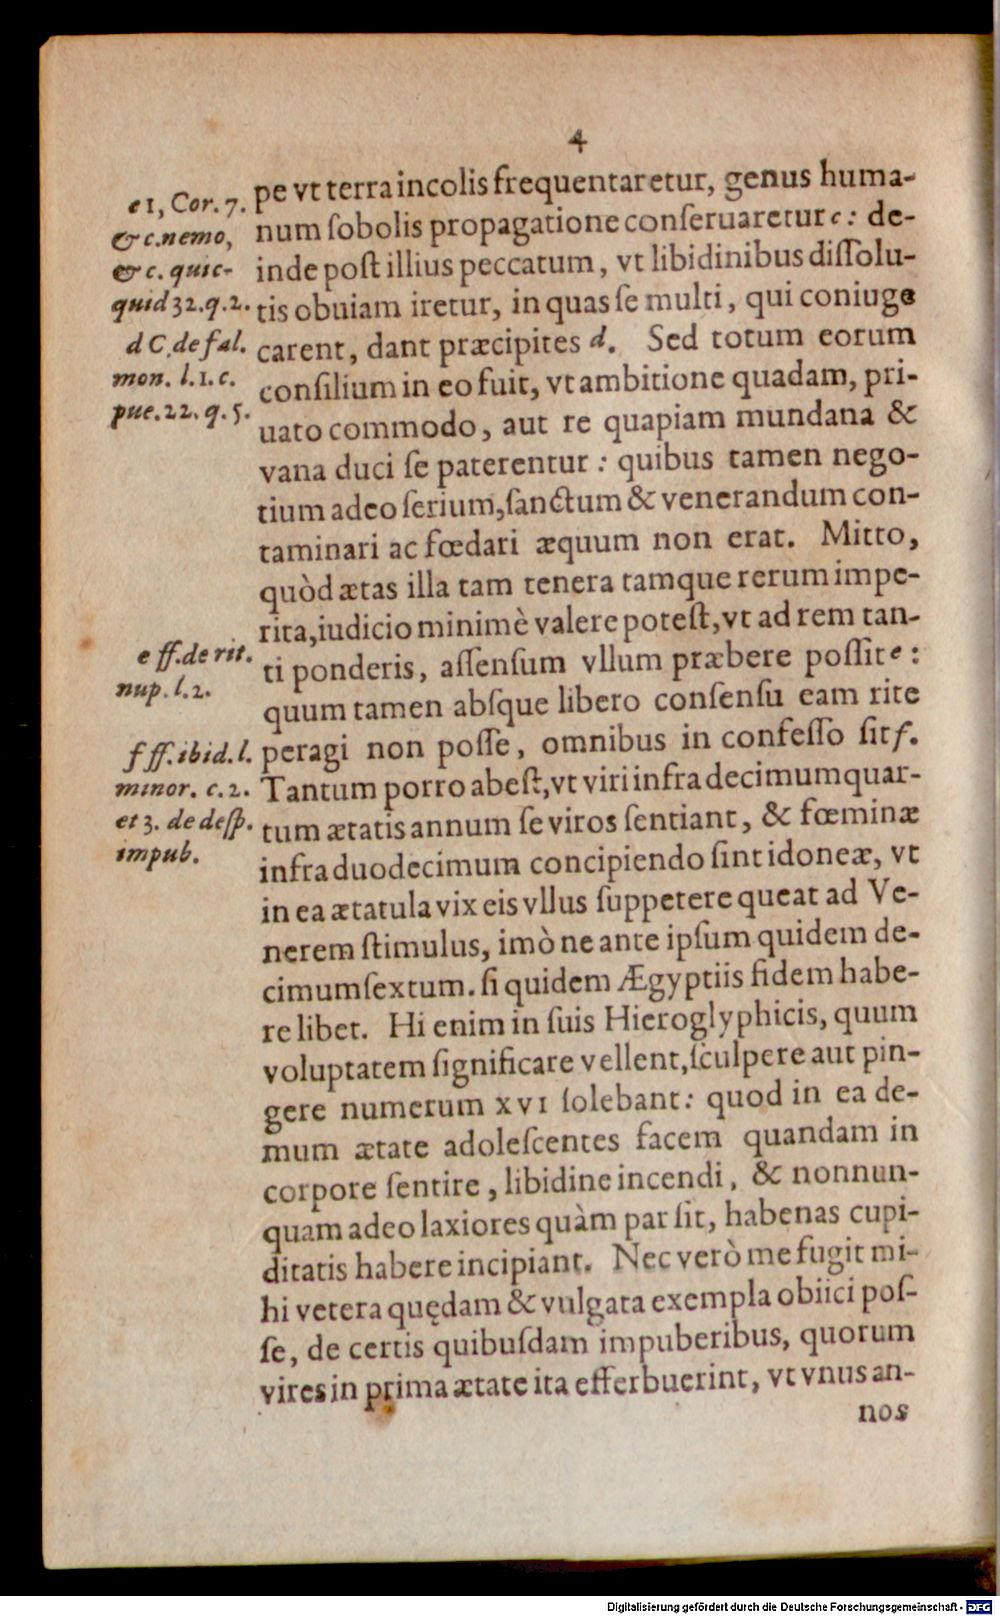 4
e 1, Cor. 7.
& c. nemo,
& c. quic-
quid 32. q. 2.
d C. de fal.
mon. l. 1. c.
pue. 22. q. 5.
e ff. de rit.
nup. l. 2.
f ff. ibid. l.
minor. c. 2.
et 3. de desp.
impub.
pe vt terra incolis frequentaretur, genus huma-
num ſobolis propagatione conſeruaretur c: de-
inde poſt illius peccatum, vt libidinibus diſſolu-
tis obuiam iretur, in quas ſe multi, qui coniuge
carent, dant præcipites d. Sed totum eorum
conſilium in eo fuit, vt ambitione quadam, pri-
uato commodo, aut re quapiam mundana &
vana duci ſe paterentur: quibus tamen nego-
tium adeo ſerium, ſanctum & venerandum con-
taminari ac fœdari æquum non erat. Mitto,
quòd ætas illa tam tenera tamque rerum impe-
rita, iudicio minimè valere poteſt, vt ad rem tan-
ti ponderis, aſſenſum vllum præbere poſſit e:
quum tamen abſque libero conſenſu eam rite
peragi non poſſe, omnibus in confeſſo ſit f.
Tantum porro abeſt, vt viri infra decimumquar-
tum ætatis annum ſe viros ſentiant, & fœminæ
infra duodecimum concipiendo ſint idoneæ, vt
in ea ætatula vix eis vllus ſuppetere queat ad Ve-
nerem ſtimulus, imò ne ante ipſum quidem de-
cimumſextum. ſi quidem Ægyptiis fidem habe-
re libet. Hi enim in ſuis Hieroglyphicis, quum
voluptatem ſignificare vellent, ſculpere aut pin-
gere numerum XVI ſolebant: quod in ea de-
mum ætate adoleſcentes facem quandam in
corpore ſentire, libidine incendi, & nonnun-
quam adeo laxiores quàm par ſit, habenas cupi-
ditatis habere incipiant. Nec verò me fugit mi-
hi vetera quędam & vulgata exempla obiici poſ-
ſe, de certis quibuſdam impuberibus, quorum
vires in prima ætate ita efferbuerint, vt vnus an-
nos
Digitalisierung gefördert durch die Deutsche Forschungsgemeinschaft - DFG